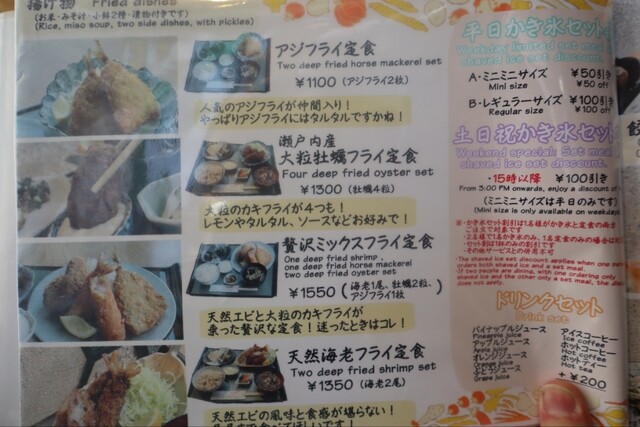 揚げ物 Fried dishes
(お米・みそ汁・小鉢2種・漬物付きです)
(Rice, miso soup, two side dishes, with pickles)
アジフライ定食
Two deep fried horse mackerel set
¥1100 (アジフライ2枚)
人気のアジフライが仲間入り!
やっぱりアジフライにはタルタルですかね!
瀬戸内産
大粒牡蠣フライ定食
Four deep fried oyster set
¥1300 (牡蠣4粒)
大粒のカキフライが4つも!
レモンやタルタル、ソースなどお好みで!
贅沢ミックスフライ定食
One deep fried shrimp,
one deep fried horse mackerel
two deep fried oyster set
¥1550 (海老1尾、牡蠣2粒、
アジフライ1枚)
天然エビと大粒のカキフライが
乗った贅沢な定食!迷ったときはコレ!
天然海老フライ定食
Two deep fried shrimp set
¥1350 (海老2尾)
天然エビの風味と食感が堪らない!
平日かき氷セット
Weekday limited set meal
shaved ice set discount
A・ミニミニサイズ ¥50引き
Mini size ¥50 off
B・レギュラーサイズ ¥100引き
Regular size ¥100 off
土日祝かき氷セット
Weekend special: Set meal
shaved ice set discount.
・15時以降 ¥100引き
From 3:00 PM onwards, enjoy a discount of
(ミニミニサイズは平日のみです)
(Mini size is only available on weekdays)
※・かき氷セット割引は1名様がかき氷と定食の両方
ご注文で対象です
・2名様で1名かき氷のみ、1名定食のみの場合は
・セット割は1杯のみの割引です
・その他サービスとの併用不可
・The shaved ice set discount applies when one
orders both shaved ice and a set meal.
・If two people are dining, with one ordering only
shaved ice and the other only a set meal, the
does not apply.
ドリンクセット
Drink set
パイナップルジュース
Pineapple juice
アップルジュース
Apple juice
オレンジジュース
Orange juice
ぶどうジュース
Grape juice
アイスコーヒー
Ice coffee
ホットコーヒー
Hot coffee
ホットティー
Hot tea
+ ¥200